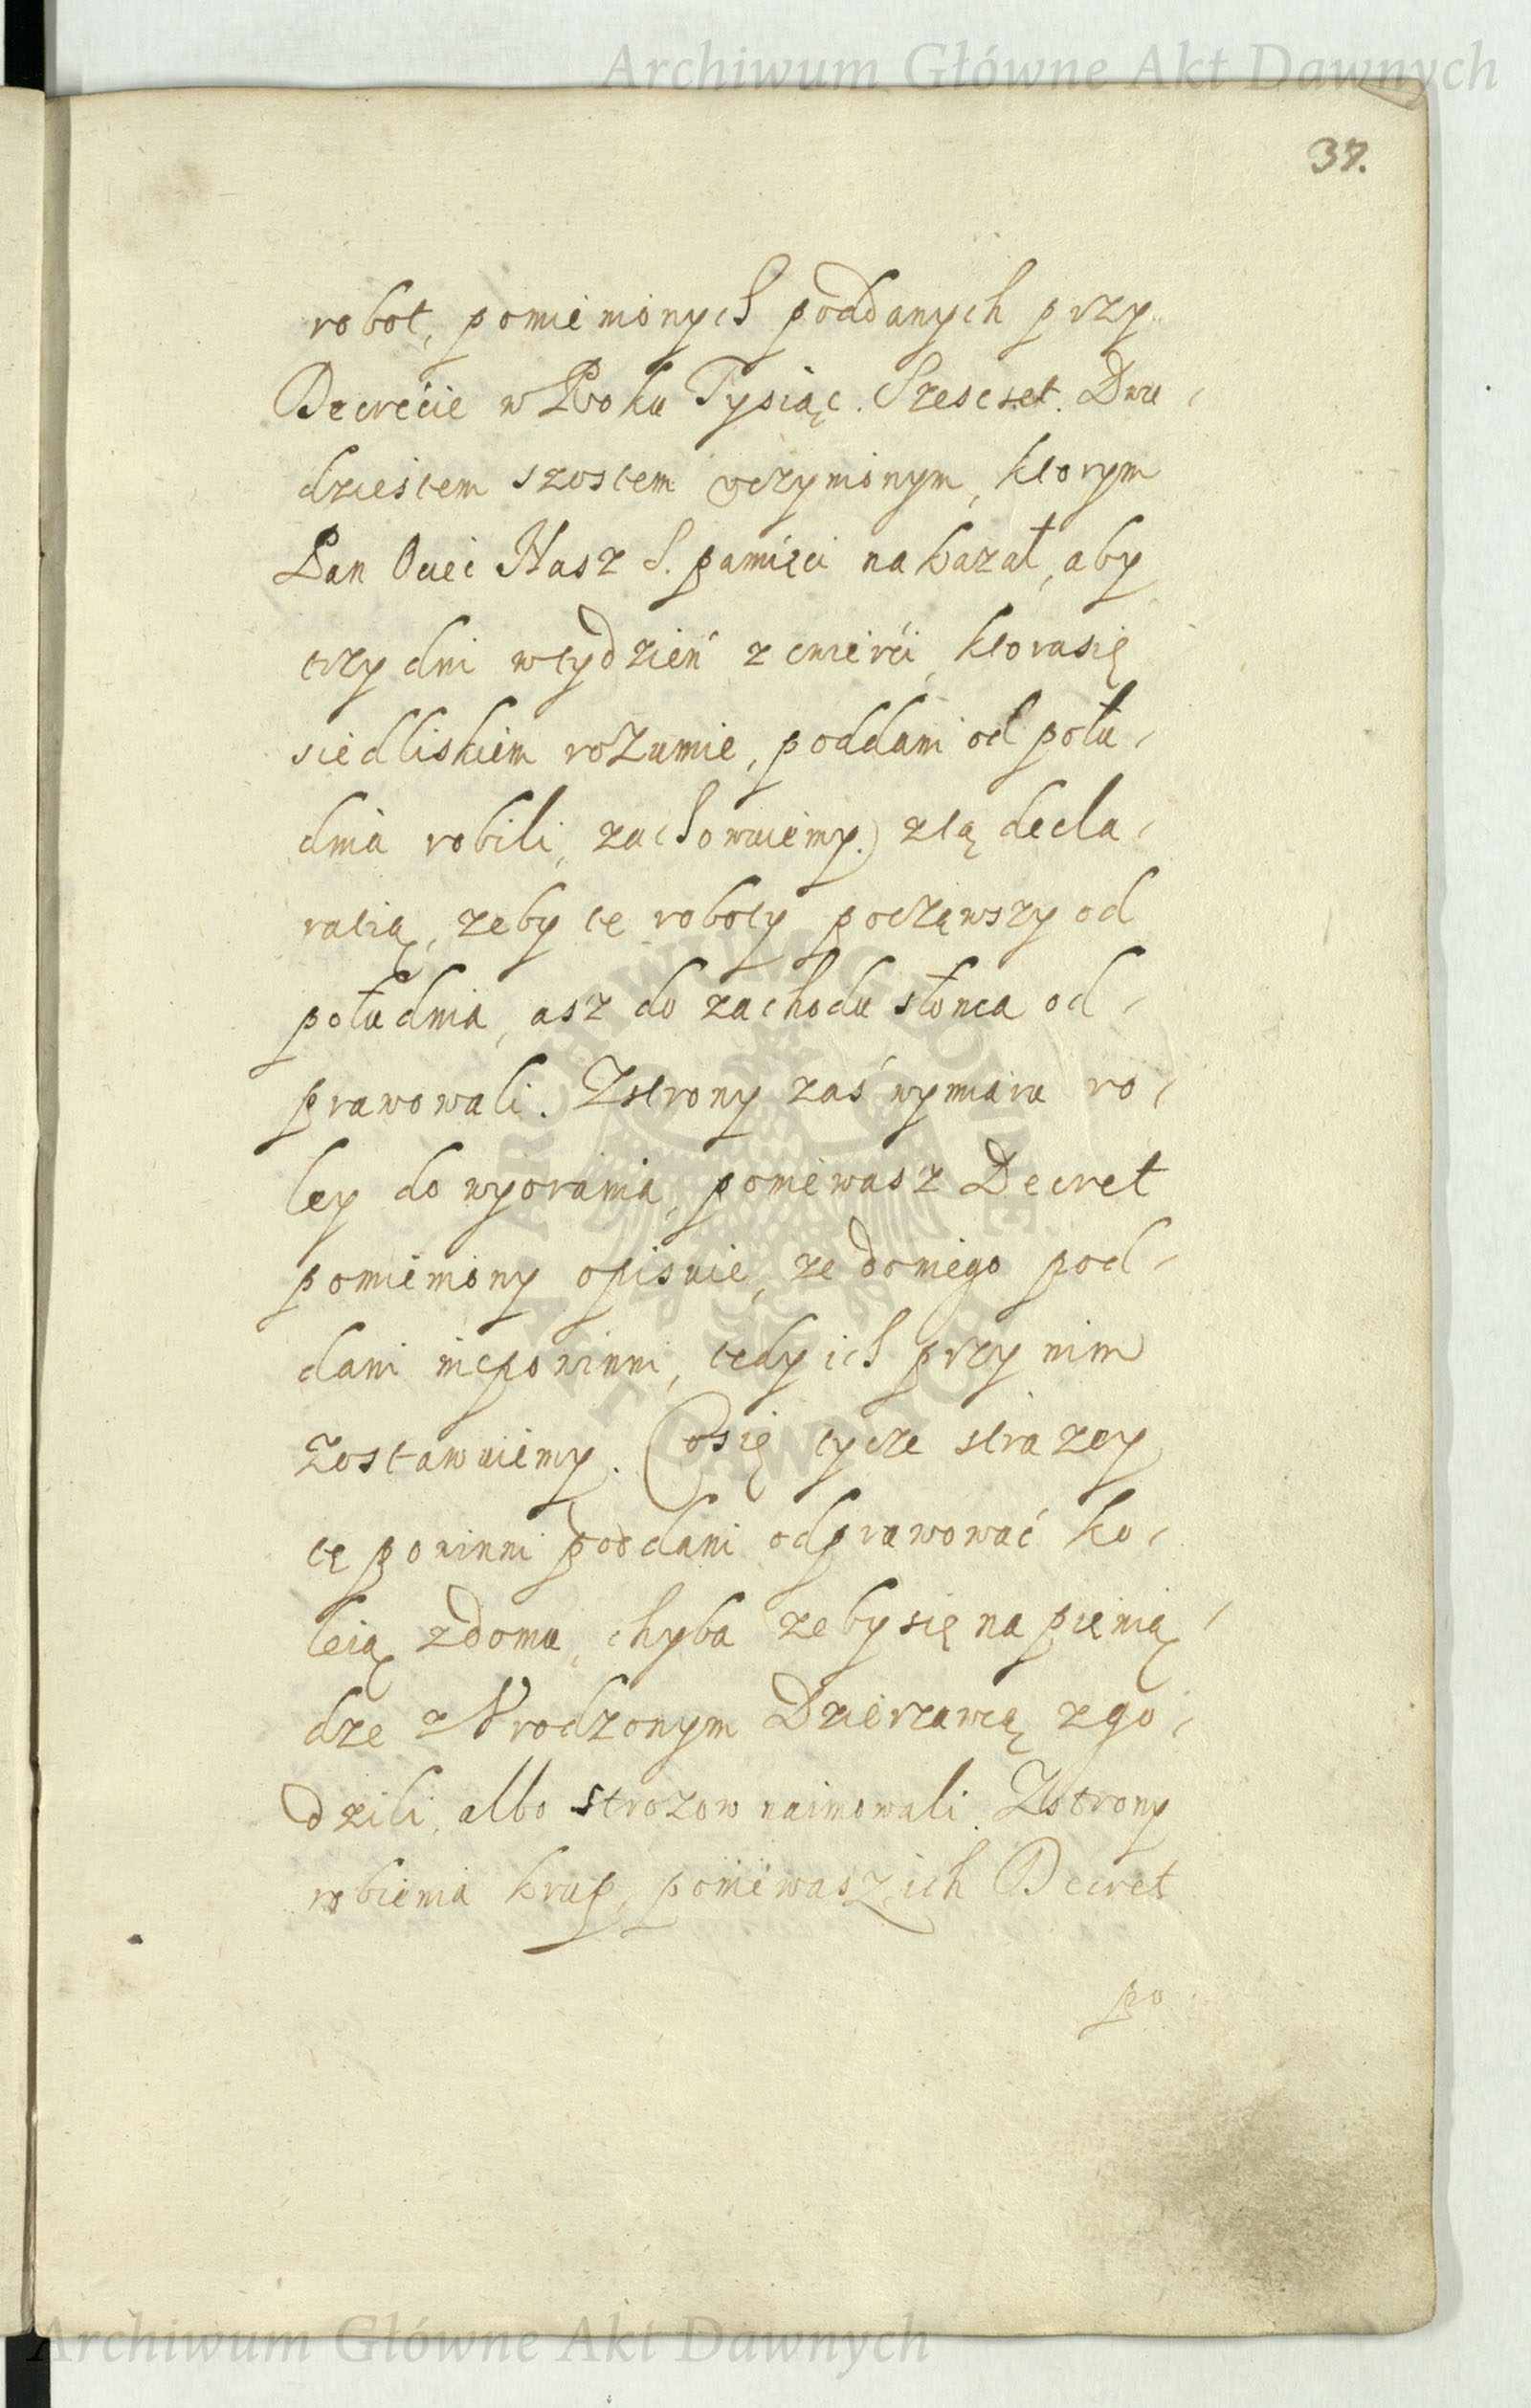 Archiwum Główne Akt Dawnych
37.
robot, pomienionych poddanych przy
Decrecie w Roku Tysiąc. Szescset. Dwu-
dziestem szostem uczynionym, ktorym
Pan Ociec Nasz S. pamięci nakazał, aby
trzy dni wtydzień z cwierci, ktorasię
siedliskiem rozumie, poddani od połu-
dnia robili, zachowuiemy.) ztą decla-
ratią, zeby te roboty począwszy od
południa, asz do zachodu słonca od-
prawowali. Zstrony zaś wymiaru ro-
ley do wyorania, poniewasz Decret
pomieniony opisuie, ze doniego pod-
dani niepowinni, tedy ich przy nim
zostawuiemy. Cosię tycze strazey
tę powinni poddani odprawować ko-
leią zdomu, chyba zeby się na pienią-
dze z Urodzonym Dzierzawcą zgo-
dzili, albo strozow naimowali. Zstrony
robienia krup, poniewasz ich Decret
po
ARCHIWUM GŁÓWNE AKT DAWNYCH
Archiwum Główne Akt Dawnych